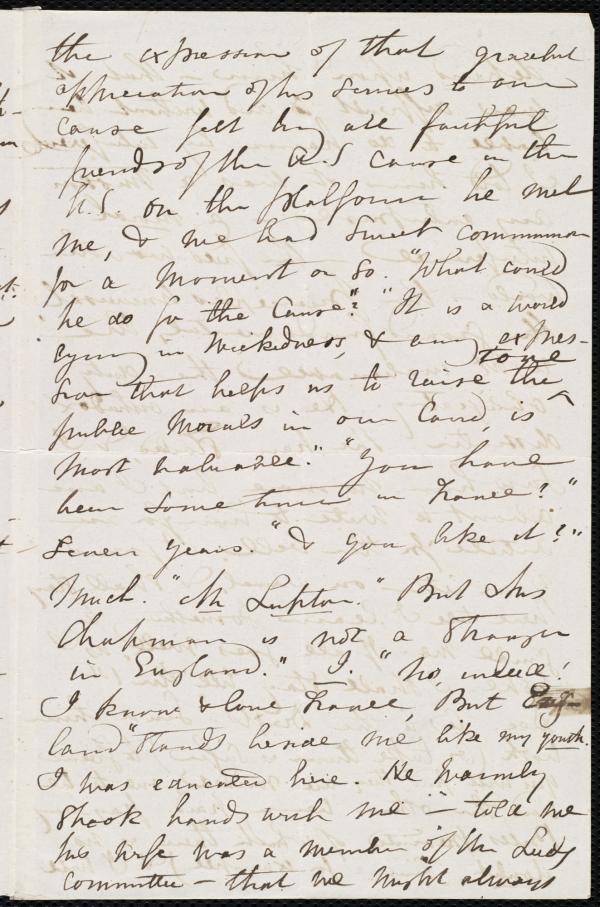 the expression of that grateful
appreciation of his services to our
cause felt by all faithful
friends of the A.S cause in the
U.S. on the platform he met
me, & we had sweet communion
for a moment or so. "What could
he do for the Cause?" "It is a world
lying in Wickedness, & any expres-
sion that helps us to raise the ^ tone
public morals in our Land, is
most valuable." "You have
been some time in France?"
Seven years. "& you like it?"
Much. "Mr Lupton." But Mrs
Chapman is not a Stranger
in England." I. "No, indeed!
I know & love France, But Eng-
land "Stands beside me like my youth.
I was educated here. He warmly
shook hands with me — told me
his wife was a member of the Leeds
committee — that we might always